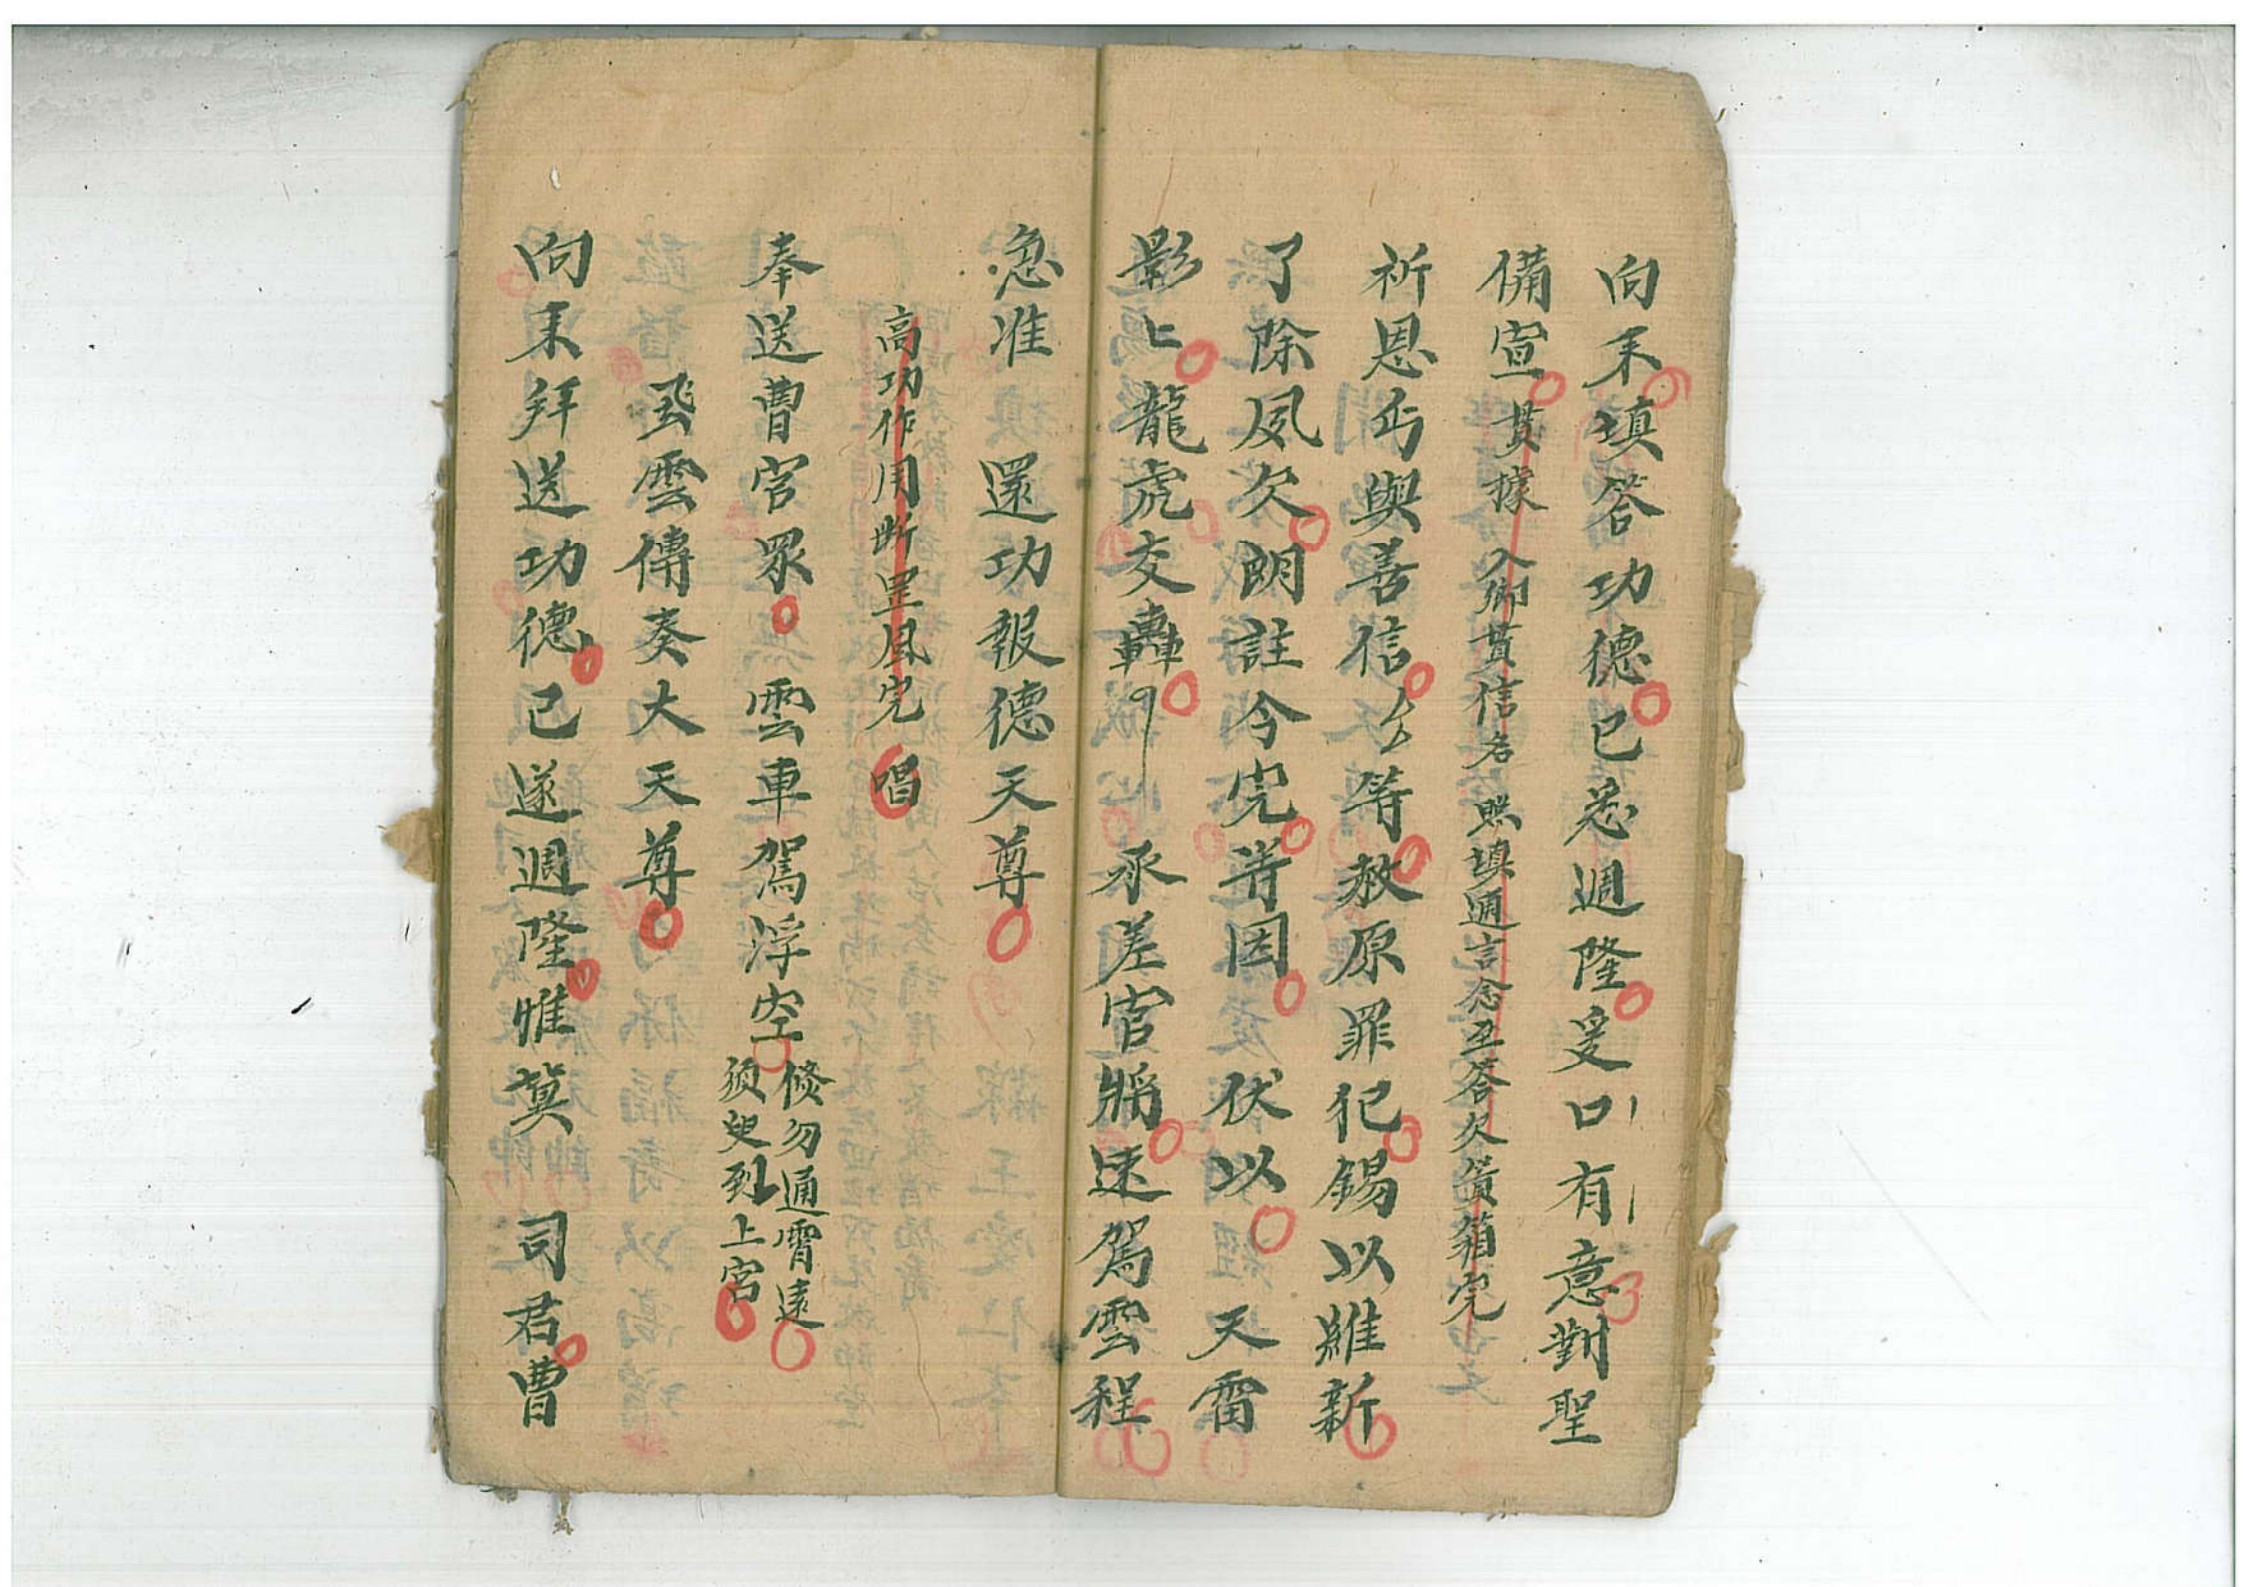 向来填答功德已悉週隆爰口有意對聖
備宣貫據入鄉貫信名照填週言念至答欠賫箱完
祈恩丐與善信厶等赦原罪犯錫以維新
了除夙欠朗註今完善因伏以天雷
影〻龍虎交轟承差官將速駕雲程
急准還功報德天尊
高功作用断罡風完唱
奉送曹官眾雲車駕浮空倐勿通霄遠
須臾到上宮
飛雲傳奏大天尊
向来拜送功德已遂週隆惟冀司君曹